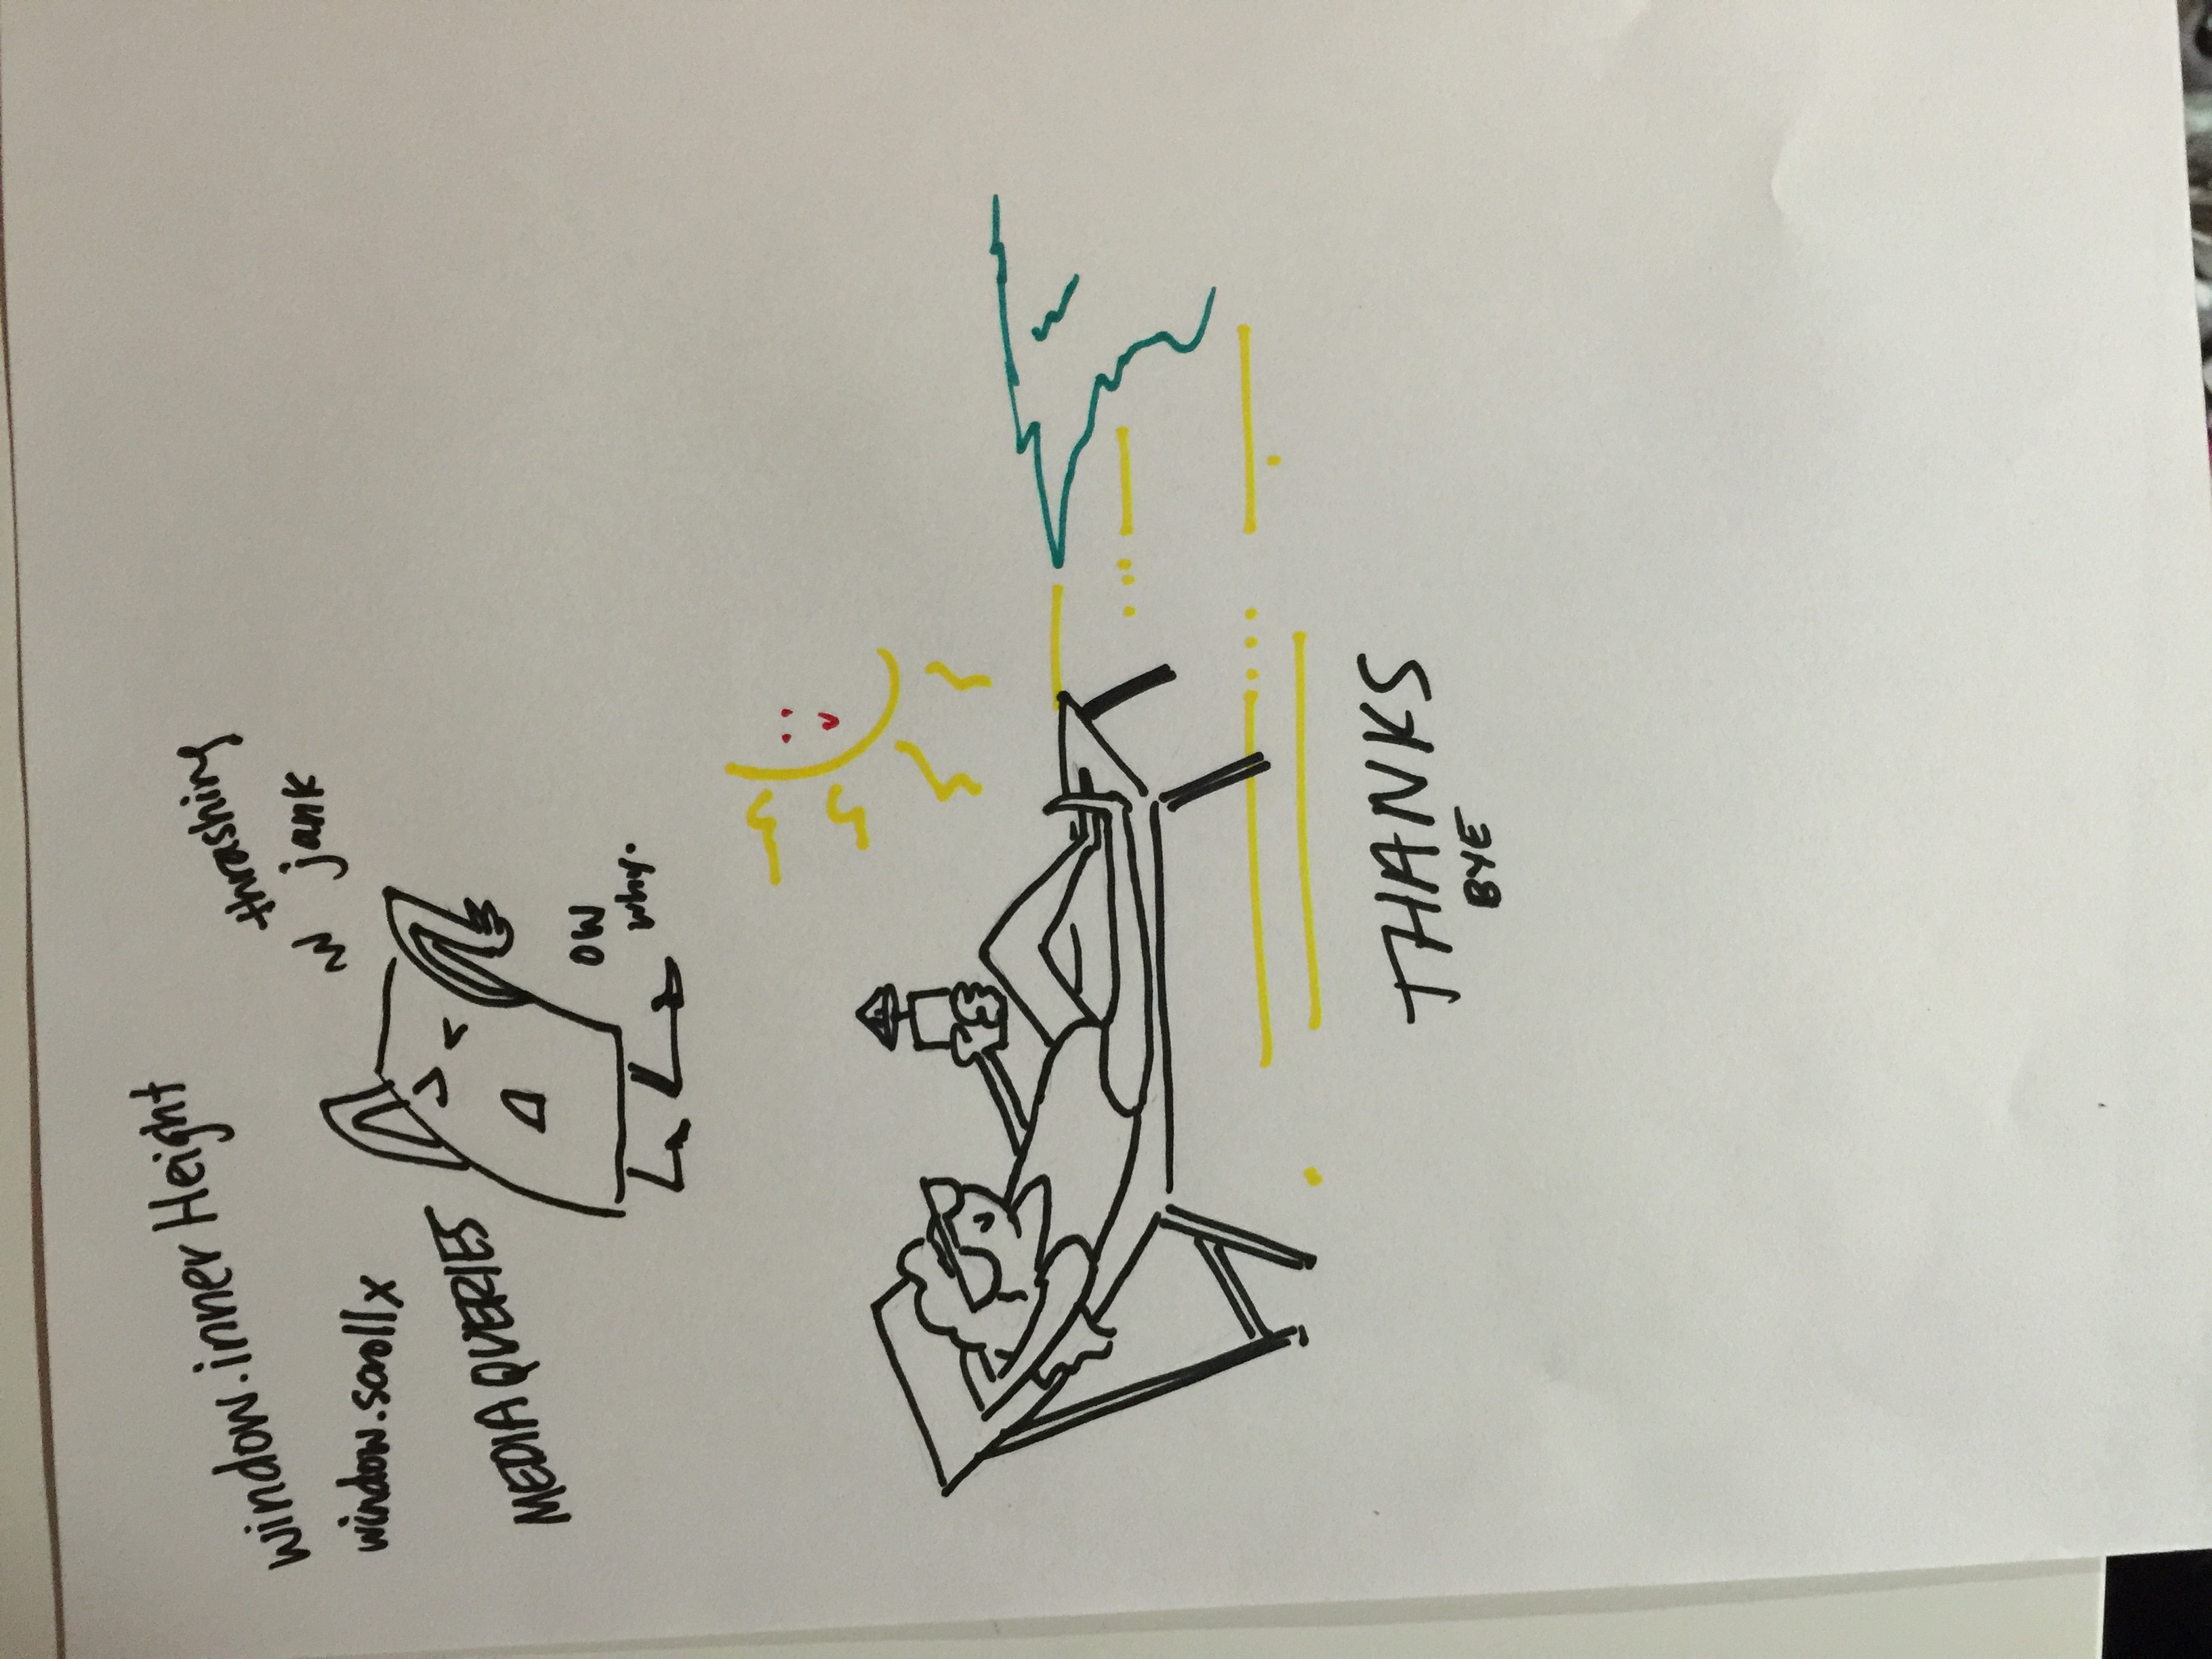 window.innerHeight
window.scrollx
MEDIA QUERIES
thrashing
jank
ow
why.
THANKS
BYE